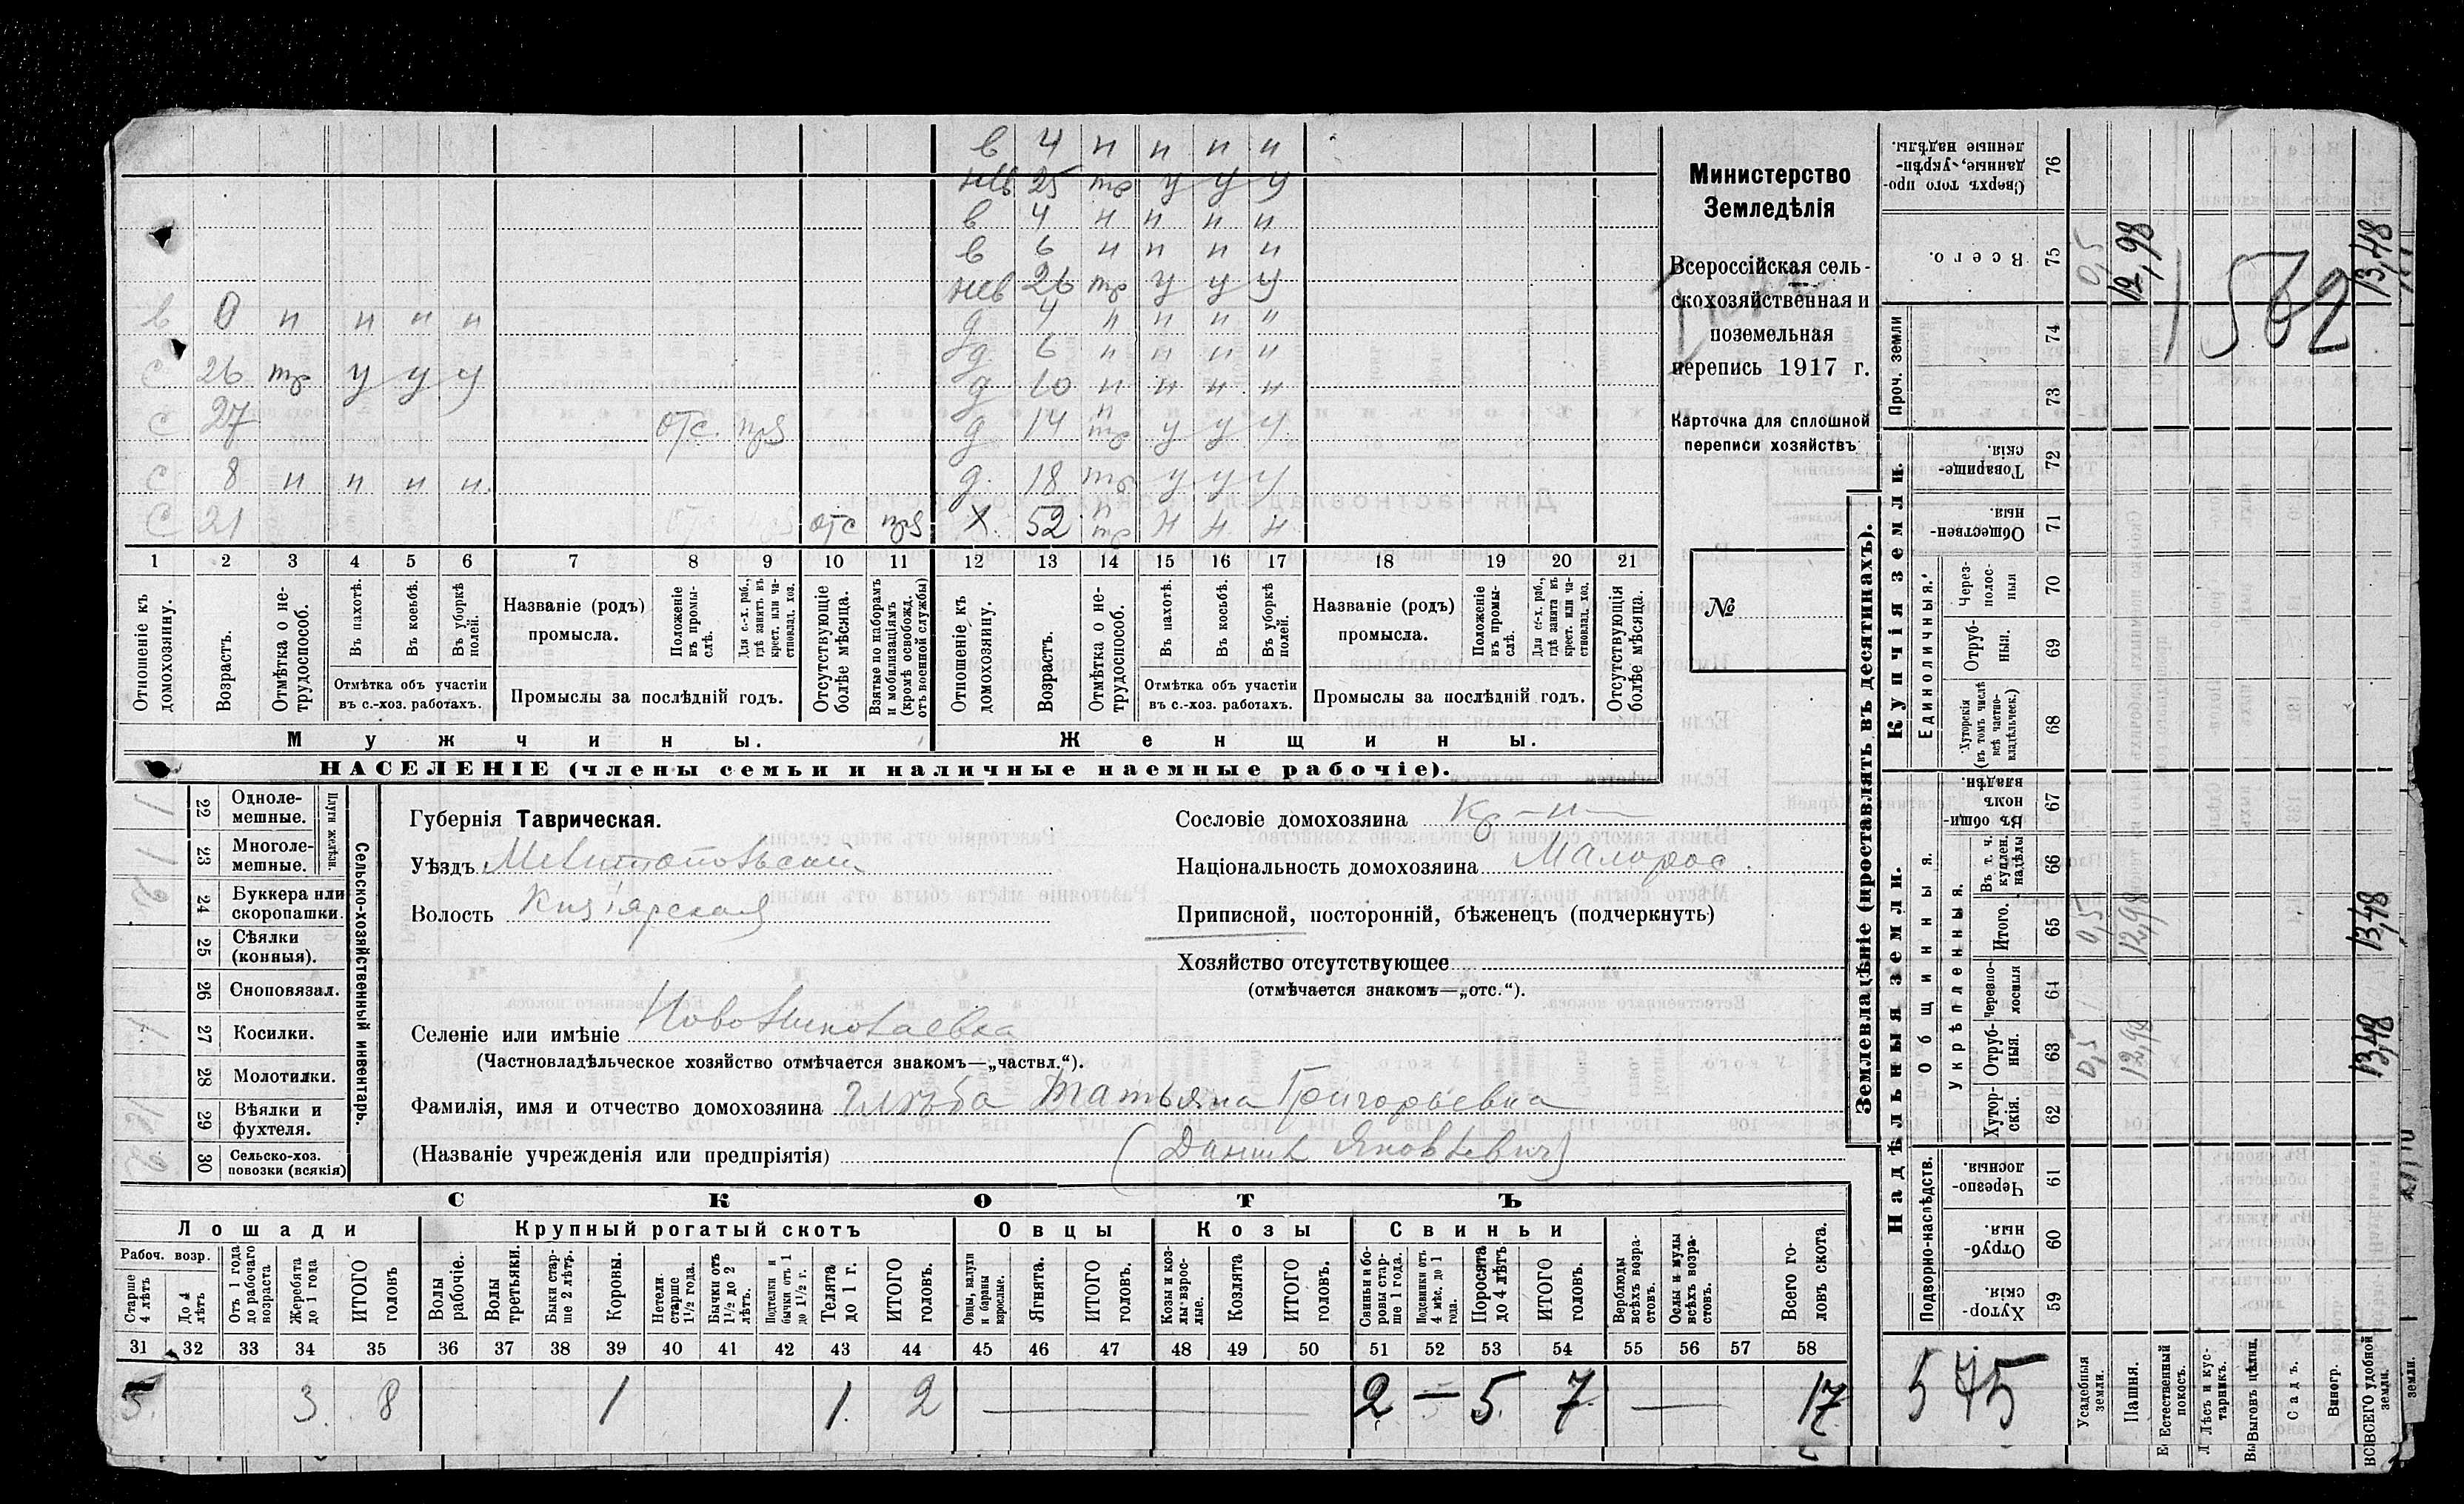 в 4 н н н н
нев 25 тр у у у
в 4 н н н н
в 6 н н н н
нев 26 тр у у у
в 8 н н н н д 4 н н н н
д 6 н н н н
с 26 тр у у у д 10 н н н н
с 27 отс. д 14 н тр у у у
с 8 н н н н. д. 18 тр у у у
с 21 отс х 52 н тр н н н
1 2 3 4 5 6 7 8 9 10 11 12 13 14 15 16 17 18 19 20 21
Отношеніе къ домохозяину.
Возрастъ.
Отмѣтка о нетрудоспособ.
Въ пахотѣ.
Въ косьбѣ.
Въ уборкѣ полей.
Отмѣтка объ участіи въ с.-хоз. работахъ.
Названіе (родъ) промысла.
Положеніе въ промыслѣ.
Для с.-х. раб., гдѣ занятъ въ крест. или частновлад. хоз.
Промыслы за послѣдній годъ.
Отсутствующіе болѣе мѣсяца.
Взятые по наборамъ и мобилизаціямъ (кромѣ освобожд. отъ военной службы)
Отношеніе къ домохозяину.
Возрастъ.
Отмѣтка о нетрудоспособ.
Въ пахотѣ.
Въ косьбѣ.
Въ уборкѣ полей.
Отмѣтка объ участіи въ с.-хоз. работахъ.
Названіе (родъ) промысла.
Положеніе въ промыслѣ.
Для с.-х. раб., гдѣ занята въ крест. или частновлад. хоз.
Промыслы за послѣдній годъ.
Отсутствующія болѣе мѣсяца.
Мужчины. Женщины.
НАСЕЛЕНІЕ (члены семьи и наличные наемные рабочіе).
Министерство
Земледѣлія
Всероссійская сель-
скохозяйственная и
поземельная
перепись 1917 г.
Карточка для сплошной
переписи хозяйствъ
№
22 Однолемешные. 1
23 Многолемешные. 1
Плуги желѣзн.
24 Буккера или скоропашки. 2
25 Сѣялки (конныя).
26 Сноповязал.
27 Косилки. 1
28 Молотилки.
29 Вѣялки и фухтеля.
30 Сельско-хоз. повозки (всякія) 2
Сельско-хозяйственный инвентарь.
Губернія Таврическая.
Уѣздъ Мелитопольскій
Волость Кизіярская
Селеніе или имѣніе Новониколаевка
(Частновладѣльческое хозяйство отмѣчается знакомъ—„частвл.“).
Фамилія, имя и отчество домохозяина Глюба Татьяна Григорьевна
(Названіе учрежденія или предпріятія) (Данил Яковлевич)
Сословіе домохозяина кр-н
Національность домохозяина Малорос.
Приписной, посторонній, бѣженецъ (подчеркнуть)
Хозяйство отсутствующее
(отмѣчается знакомъ—„отс.“).
СКОТЪ
Лошади Крупный рогатый скотъ Овцы Козы Свиньи
Рабоч. возр.
Старше 4 лѣтъ
До 4 лѣтъ
Отъ 1 года до рабочаго возраста
Жеребята до 1 года
ИТОГО головъ
Волы рабочіе.
Волы третьяки.
Быки старше 2 лѣтъ.
Коровы.
Нетели старше 1½ года.
Бычки отъ 1½ до 2 лѣтъ.
Подтелки и бычки отъ 1 до 1½ г.
Телята до 1 г.
ИТОГО головъ.
Овцы, валухи и бараны взрослые.
Ягнята.
ИТОГО головъ.
Козы и козлы взрослые.
Козлята
ИТОГО головъ.
Свиньи и боровы старше 1 года.
Подсвинки отъ 4 мѣс. до 1 года.
Поросята до 4 лѣтъ
ИТОГО головъ.
Верблюды всѣхъ возрастовъ.
Ослы и мулы всѣхъ возрастовъ.
Всего головъ скота.
31 32 33 34 35 36 37 38 39 40 41 42 43 44 45 46 47 48 49 50 51 52 53 54 55 56 57 58
5. 3. 8 1 1. 2 — 2 — 5. 7. — 17
Землевладѣніе (проставлять въ десятинахъ).
Надѣльныя земли. Купчія земли.
Сверхъ того проданные, укрѣпленные надѣлы. 76
Всего. 75 0,5 12,98 13,48
Проч. земли 74 73
1562
Товарищескія 72
Общественныя. 71
Единоличныя.
Черезполосныя 70
Отрубныя. 69
Хуторскія (въ томъ числѣ всѣ частновладѣльческ.) 68
Въ общинномъ владѣн. 67
Общинныя.
Укрѣпленныя.
Въ т. ч. куплен. надѣлы 66
Итого. 65 0,5 12,98 13,48
Черезполосныя 64
Отрубныя. 63 0,5 12,98 13,48
Хуторскія. 62
Подворно-наслѣдств.
Черезполосныя. 61
Отрубныя. 60
Хуторскія. 59
545
Усадебныя земли.
Пашня.
Естественный покосъ.
Лѣсъ и кустарникъ.
Выгонъ цѣлин.
Садъ.
Виногр.
ВСЕГО удобной земли.
земли.